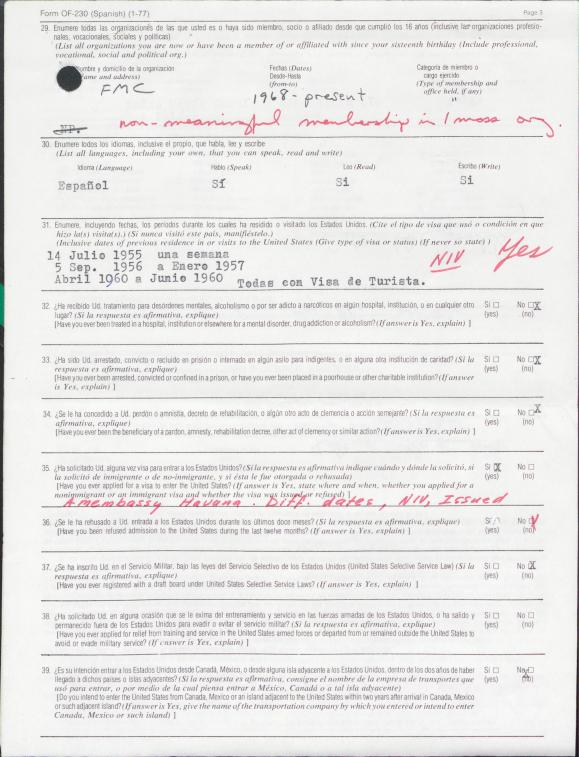 Form OF-230 (Spanish) (1-77) Page 3
29. Enumere todas las organizaciones de las que usted es o haya sido miembro, socio o afiliado desde que cumplió los 16 años (inclusive las organizaciones profesio-
nales, vocacionales, sociales y políticas)
(List all organizations you are now or have been a member of or affiliated with since your sixteenth birthday (Include professional,
vocational, social and political org.)
Nombre y domicilio de la organización Fechas (Dates) Categoría de miembro o
(Name and address) Desde-Hasta cargo ejercido
(from-to) (Type of membership and
office held, if any)
FMC 1968 - present "
non-meaningful membership in 1 mass org.
30. Enumere todos los idiomas, inclusive el propio, que habla, lee y escribe
(List all languages, including your own, that you can speak, read and write)
Idioma (Language) Hablo (Speak) Leo (Read) Escribo (Write)
Español Sí Si Si
31. Enumere, incluyendo fechas, los períodos durante los cuales ha residido o visitado los Estados Unidos. (Cite el tipo de visa que usó o condición en que
hizo la(s) visita(s).) (Si nunca visitó este país, manifiéstelo.)
(Inclusive dates of previous residence in or visits to the United States (Give type of visa or status) (If never so state) )
14 Julio 1955 una semana NIV Yes
5 Sep. 1956 a Enero 1957
Abril 1960 a Junio 1960 Todas con Visa de Turista.
32. ¿Ha recibido Ud. tratamiento para desórdenes mentales, alcoholismo o por ser adicto a narcóticos en algún hospital, institución, o en cualquier otro Sí No X
lugar? (Si la respuesta es afirmativa, explique) (yes) (no)
[Have you ever been treated in a hospital, institution or elsewhere for a mental disorder, drug addiction or alcoholism? (If answer is Yes, explain) ]
33. ¿Ha sido Ud. arrestado, convicto o recluido en prisión o internado en algún asilo para indigentes, o en alguna otra institución de caridad? (Si la Sí No X
respuesta es afirmativa, explique) (yes) (no)
[Have you ever been arrested, convicted or confined in a prison, or have you ever been placed in a poorhouse or other charitable institution? (If answer
is Yes, explain) ]
34. ¿Se le ha concedido a Ud. perdón o amnistía, decreto de rehabilitación, o algún otro acto de clemencia o acción semejante? (Si la respuesta es Sí No X
afirmativa, explique) (yes) (no)
[Have you ever been the beneficiary of a pardon, amnesty, rehabilitation decree, other act of clemency or similar action? (If answer is Yes, explain) ]
35. ¿Ha solicitado Ud. alguna vez visa para entrar a los Estados Unidos? (Si la respuesta es afirmativa indique cuándo y dónde la solicitó, si Sí X No
la solicitó de inmigrante o de no-inmigrante, y si ésta le fue otorgada o rehusada) (yes) (no)
[Have you ever applied for a visa to enter the United States? (If answer is Yes, state where and when, whether you applied for a
nonimmigrant or an immigrant visa and whether the visa was issued or refused) ]
Amembassy Havana. Diff. dates, NIV, Issued
36. ¿Se le ha rehusado a Ud. entrada a los Estados Unidos durante los últimos doce meses? (Si la respuesta es afirmativa, explique) Sí No
[Have you been refused admission to the United States during the last twelve months? (If answer is Yes, explain) ] (yes) (no)
37. ¿Se ha inscrito Ud. en el Servicio Militar, bajo las leyes del Servicio Selectivo de los Estados Unidos (United States Selective Service Law) (Si la Sí No X
respuesta es afirmativa, explique) (yes) (no)
[Have you ever registered with a draft board under United States Selective Service Laws? (If answer is Yes, explain) ]
38. ¿Ha solicitado Ud. en alguna ocasión que se le exima del entrenamiento y servicio en las fuerzas armadas de los Estados Unidos, o ha salido y Sí No
permanecido fuera de los Estados Unidos para evadir o evitar el servicio militar? (Si la respuesta es afirmativa, explique) (yes) (no)
[Have you ever applied for relief from training and service in the United States armed forces or departed from or remained outside the United States to
avoid or evade military service? (If answer is Yes, explain) ]
39. ¿Es su intención entrar a los Estados Unidos desde Canadá, México, o desde alguna isla adyacente a los Estados Unidos, dentro de los dos años de haber Sí No
llegado a dichos países o islas adyacentes? (Si la respuesta es afirmativa, consigne el nombre de la empresa de transportes que (yes) (no)
usó para entrar, o por medio de la cual piensa entrar a México, Canadá o a tal isla adyacente)
[Do you intend to enter the United States from Canada, Mexico or an island adjacent to the United States within two years after arrival in Canada, Mexico
or such adjacent island? (If answer is Yes, give the name of the transportation company by which you entered or intend to enter
Canada, Mexico or such island) ]